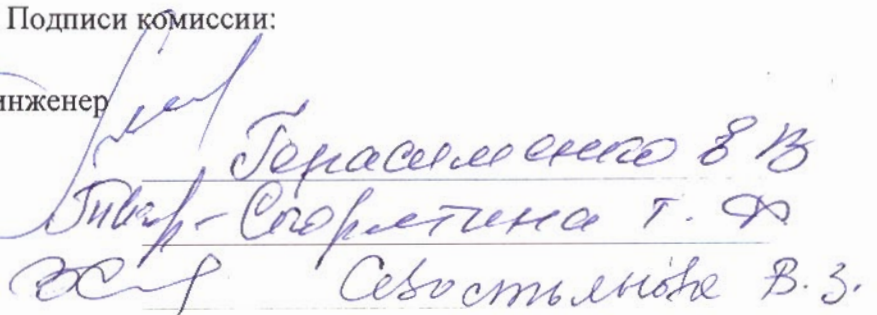 Подписи комиссии:
инженер
Герасименко Е В
Т. Ф.
Севостьянова В. З.